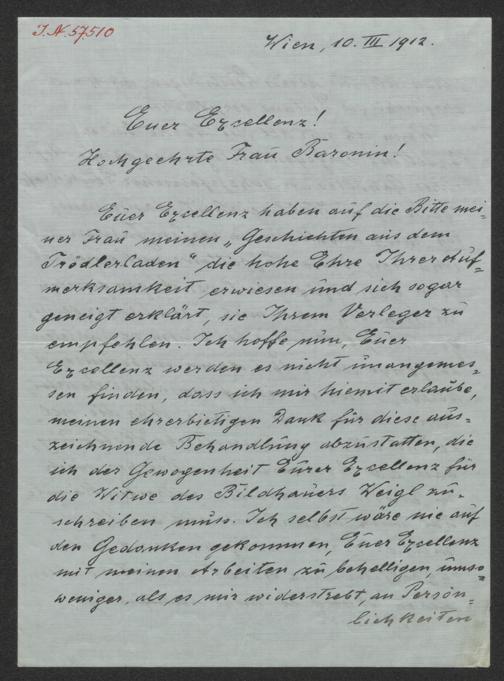 I.N. 57510
Wien, 10. III 1912.
Euer Exzellenz!
Hochgeehrte Frau Baronin!
Euer Exzellenz haben auf die Bitte mei-
ner Frau meinen „Geschichten aus dem
Trödlerladen“ die hohe Ehre Ihrer Auf-
merksamkeit erwiesen und sich sogar
geneigt erklärt, sie Ihrem Verleger zu
empfehlen. Ich hoffe nun, Euer
Exzellenz werden es nicht unangemes-
sen finden, dass ich mir hiemit erlaube,
meinen ehrerbietigen Dank für diese aus-
zeichnende Behandlung abzustatten, die
ich der Gewogenheit Eurer Exzellenz für
die Witwe des Bildhauers Weigl zu-
schreiben muss. Ich selbst wäre nie auf
den Gedanken gekommen, Euer Exzellenz
mit meinen Arbeiten zu behelligen, umso
weniger, als es mir widerstrebt, an Persön-
lichkeiten